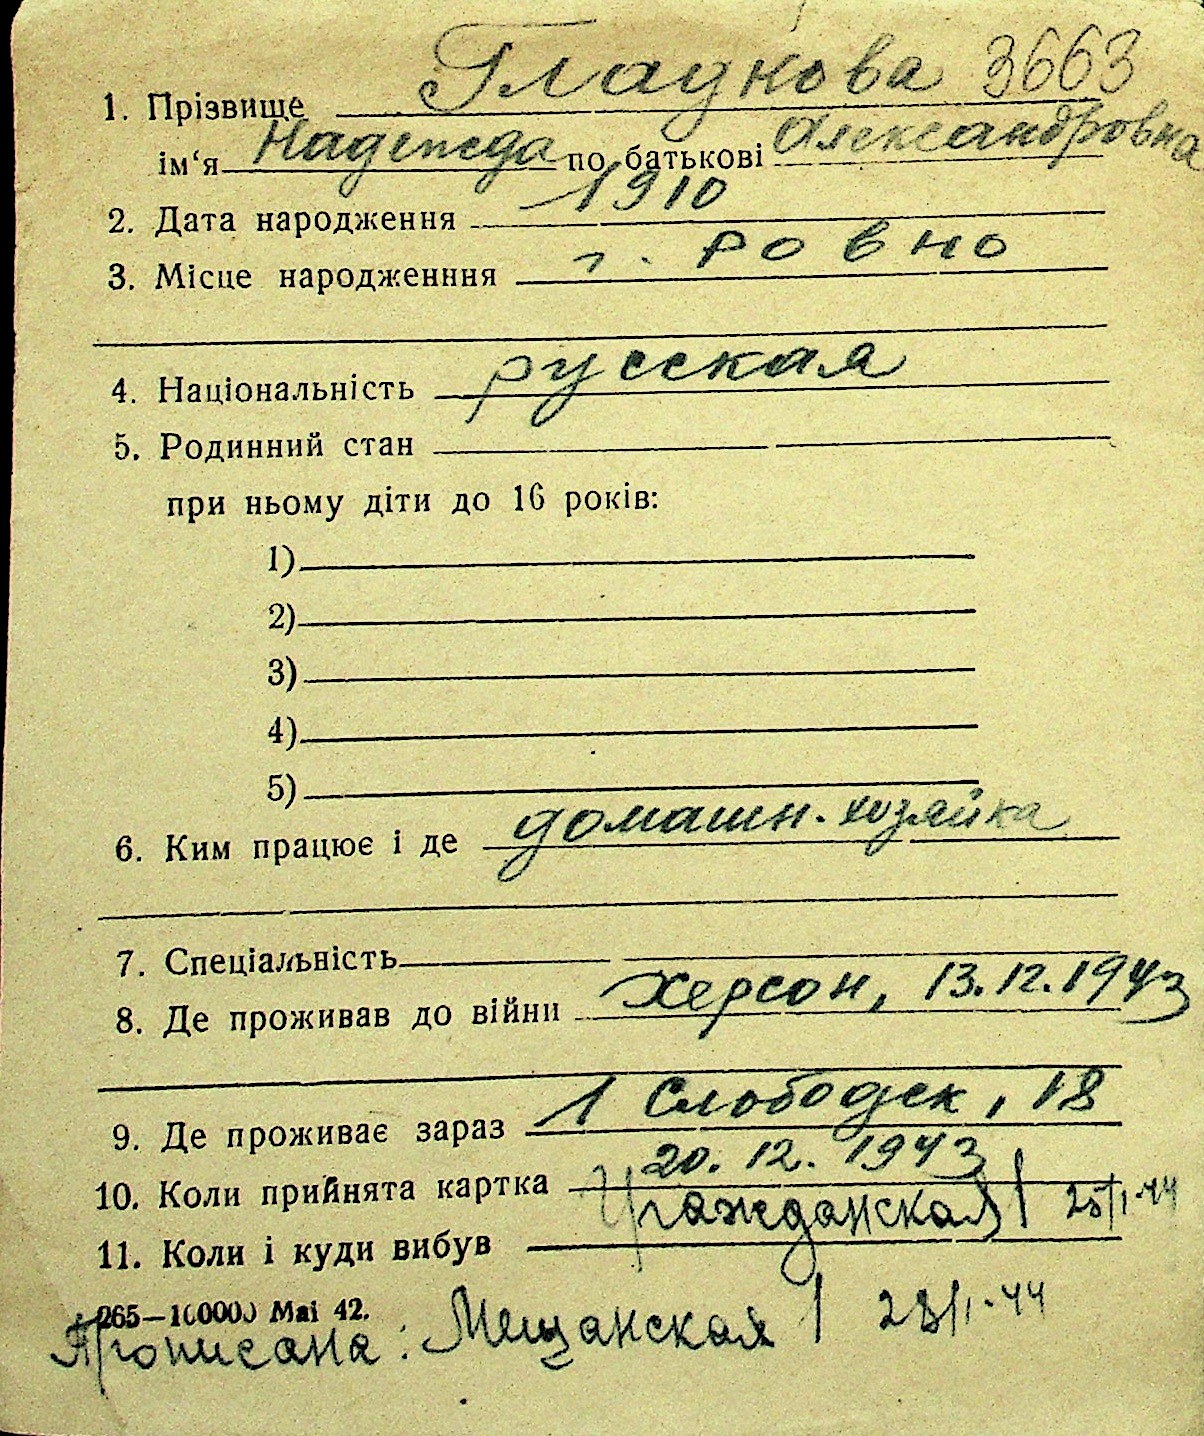 Глаукова 3663
1. Прізвище
ім‘я Надежда по батькові Александровна
2. Дата народження 1910
3. Місце народженння г. Ровно
4. Національність русская
5. Родинний стан
при ньому діти до 16 років:
1)
2)
3)
4)
5)
6. Ким працює і де домашн. хозяйка
7. Спеціальність
8. Де проживав до війни Херсон, 13.12.1943
9. Де проживає зараз 1 Слободск, 18
10. Коли прийнята картка 20.12.1943
Гражданская 1 25/I-44
11. Коли і куди вибув
265—10000) Mai 42.
Прописана: Мещанская 1 28/I-44